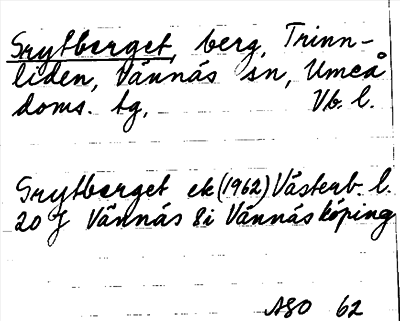 Grytberget, berg, Trinn-
liden, Vännäs sn, Umeå
doms. tg, Vb. l.
Grytberget ek (1962) Västerb. l.
20 J Vännäs 8i Vännäs köping
ASO 62